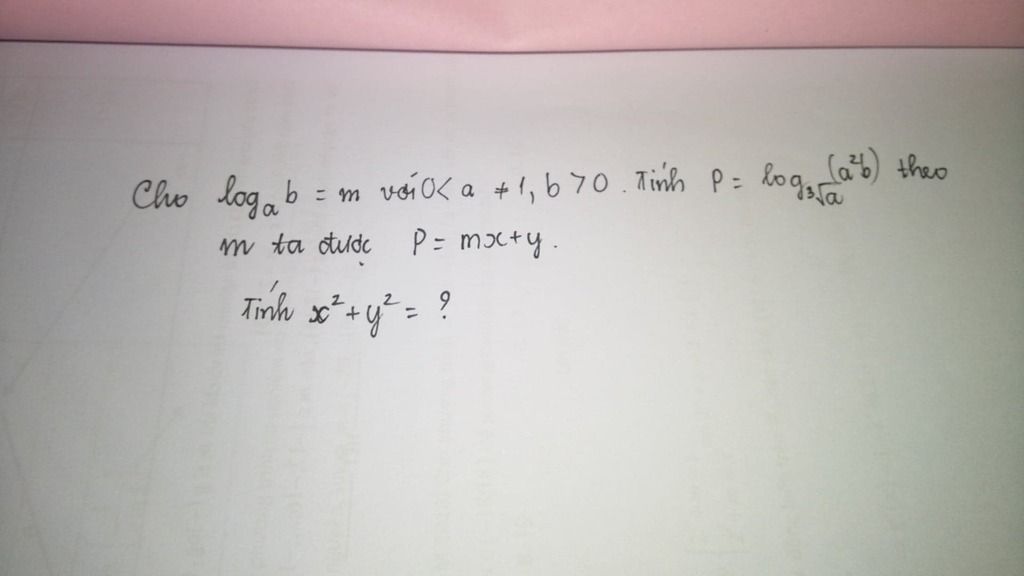 Cho logₐ b = m với 0 < a ≠ 1, b > 0. Tính P = log_{∛a} (a²b) theo
m ta được P = mx + y.
Tính x² + y² = ?